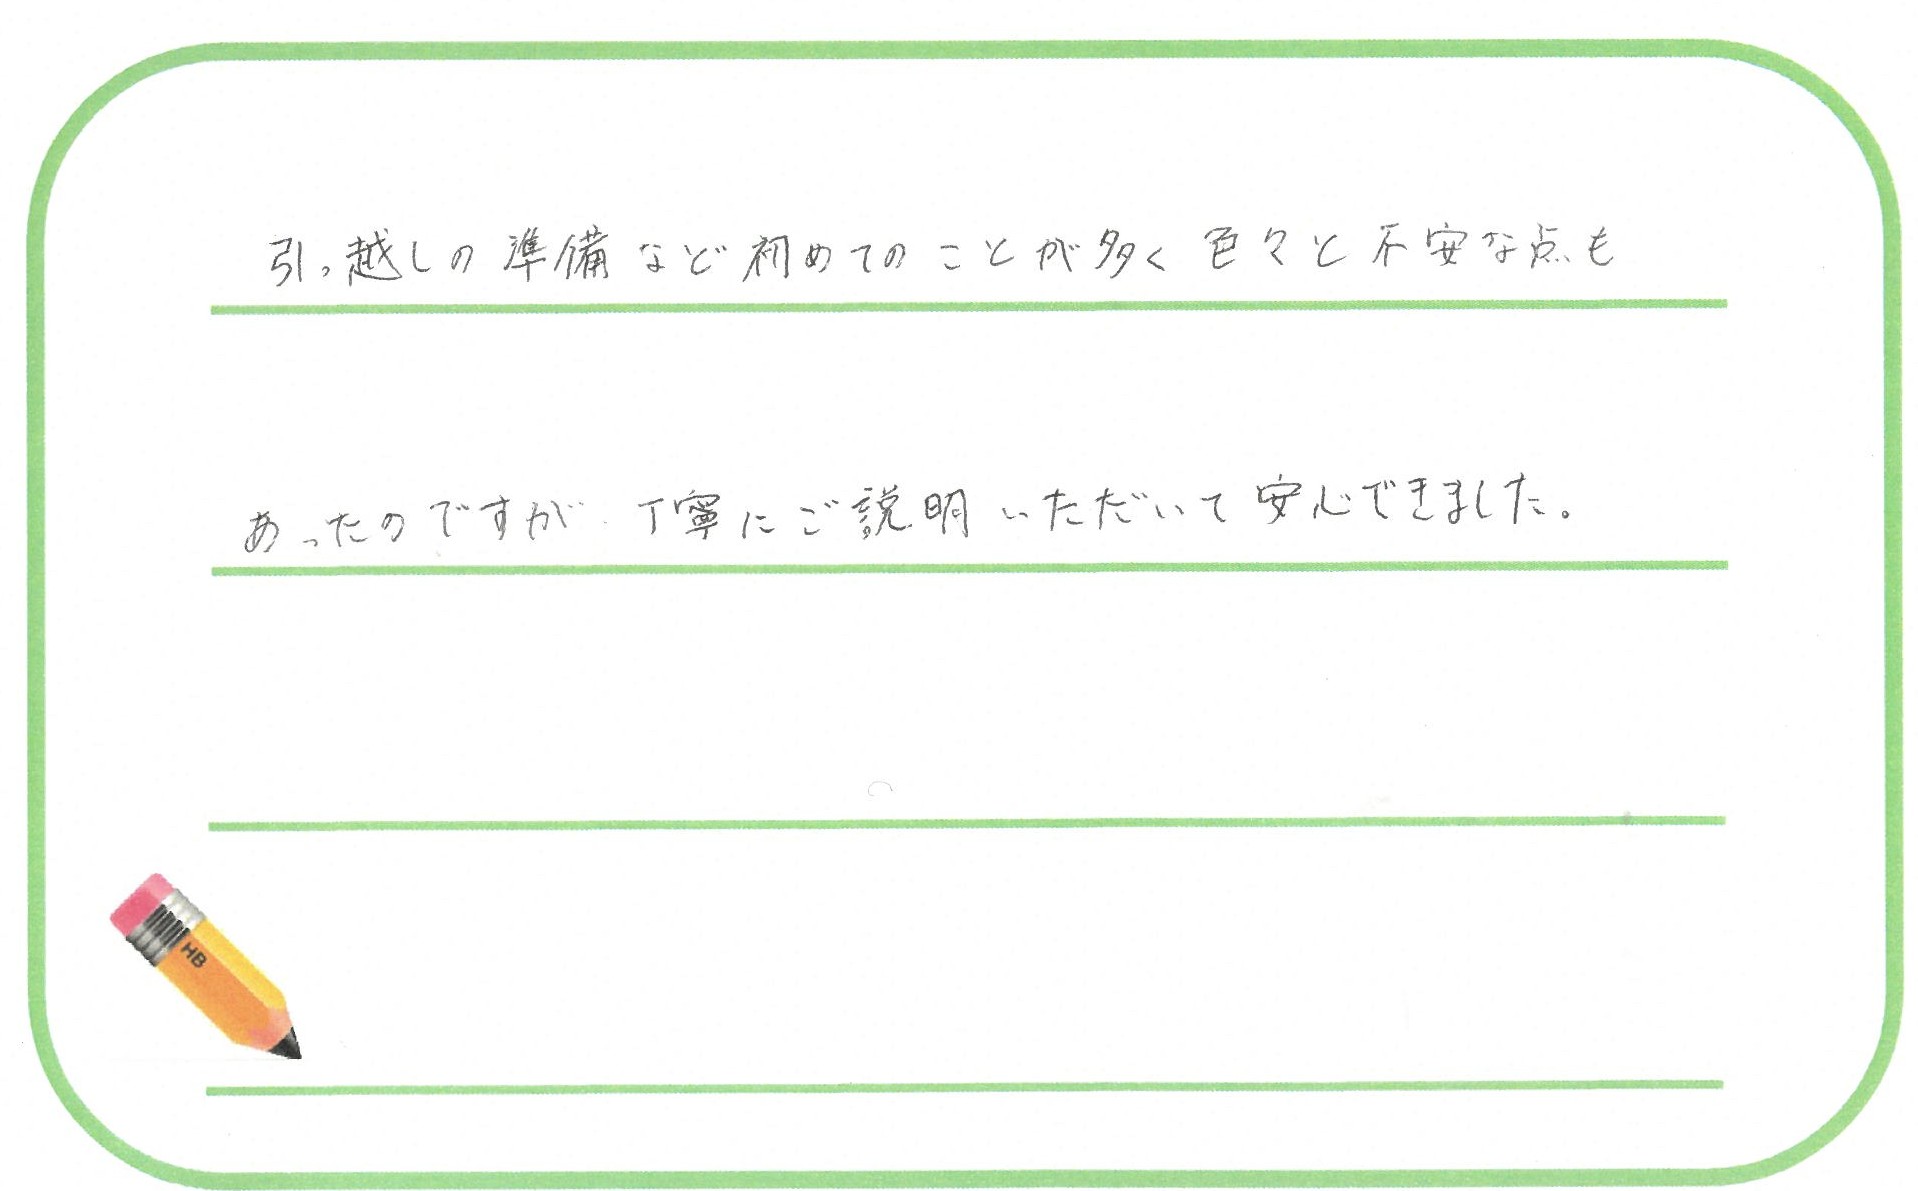 引っ越しの準備など初めてのことが多く色々と不安な点も
あったのですが、丁寧にご説明いただいて安心できました。
HB